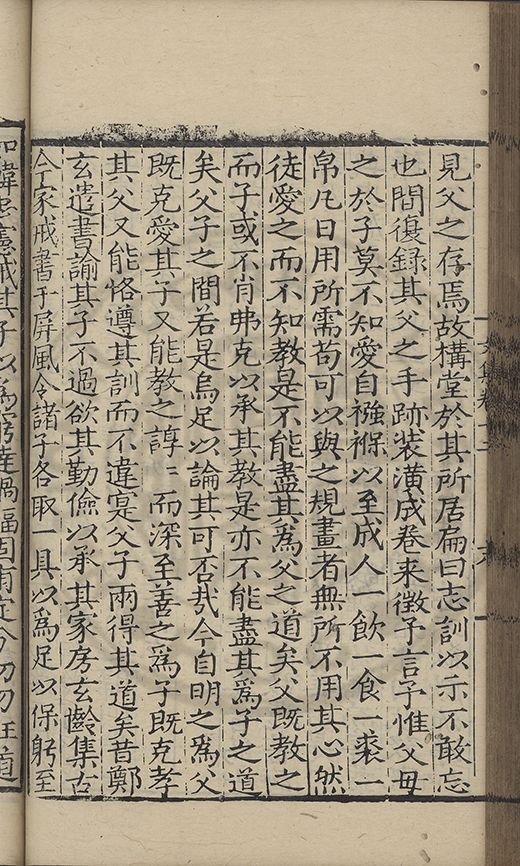 文集卷十二
見父之存焉故構堂於其所居扁曰志訓以示不敢忘
也間復録其父之手跡装潢成卷来徵予言予惟父母
之於子莫不知愛自襁褓以至成人一飲一食一裘一
帛凢日用所需苟可以與之規畫者無所不用其心然
徒愛之而不知教是不能盡其爲父之道矣父既教之
而子或不肖弗克以承其教是亦不能盡其爲子之道
矣父子之間若是烏足以論其可否㢤今自明之爲父
既克愛其子又能教之諄〻而深至善之爲子既克孝
其父又能恪遵其訓而不違寔父子兩得其道矣昔鄭
玄遣書諭其子不過欲其勤儉以承其家房玄齡集古
今家戒書于屏風令諸子各取一具以爲足以保躬至
戒其子以爲窮達禍福固有